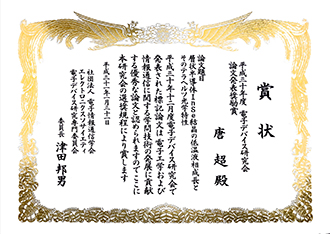 賞状
平成三十年度 電子デバイス研究会
論文発表奨励賞
唐 超 殿
論文題目
層状半導体InSe結晶の低温液相成長と
そのテラヘルツ光学特性
平成三十年十二月度電子デバイス研究会で
発表された標記論文は電子工学および
情報通信に関する学問技術の発展に貢献
する優秀な論文と認められますのでここに
本研究会の選奨規程により賞します
平成三十一年三月二十一日
社団法人 電子情報通信学会
エレクトロニクスソサイエティ
電子デバイス研究専門委員会
委員長 津田 邦男